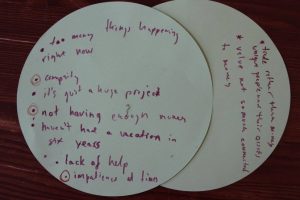 • too many things happening
right now
• company
• it's quit a huge project
• not having enough money
• haven't had a vacation in
six years
• lack of help
• impatience at times
* trades rather than money
unique people and their quirks
* value not so much connected
to money